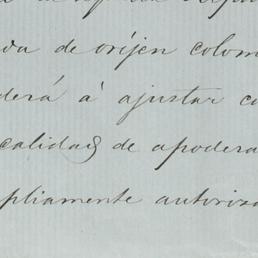 da de oríjen colom
derá á ajustar co
calidad de apodera
pliamente autoriza